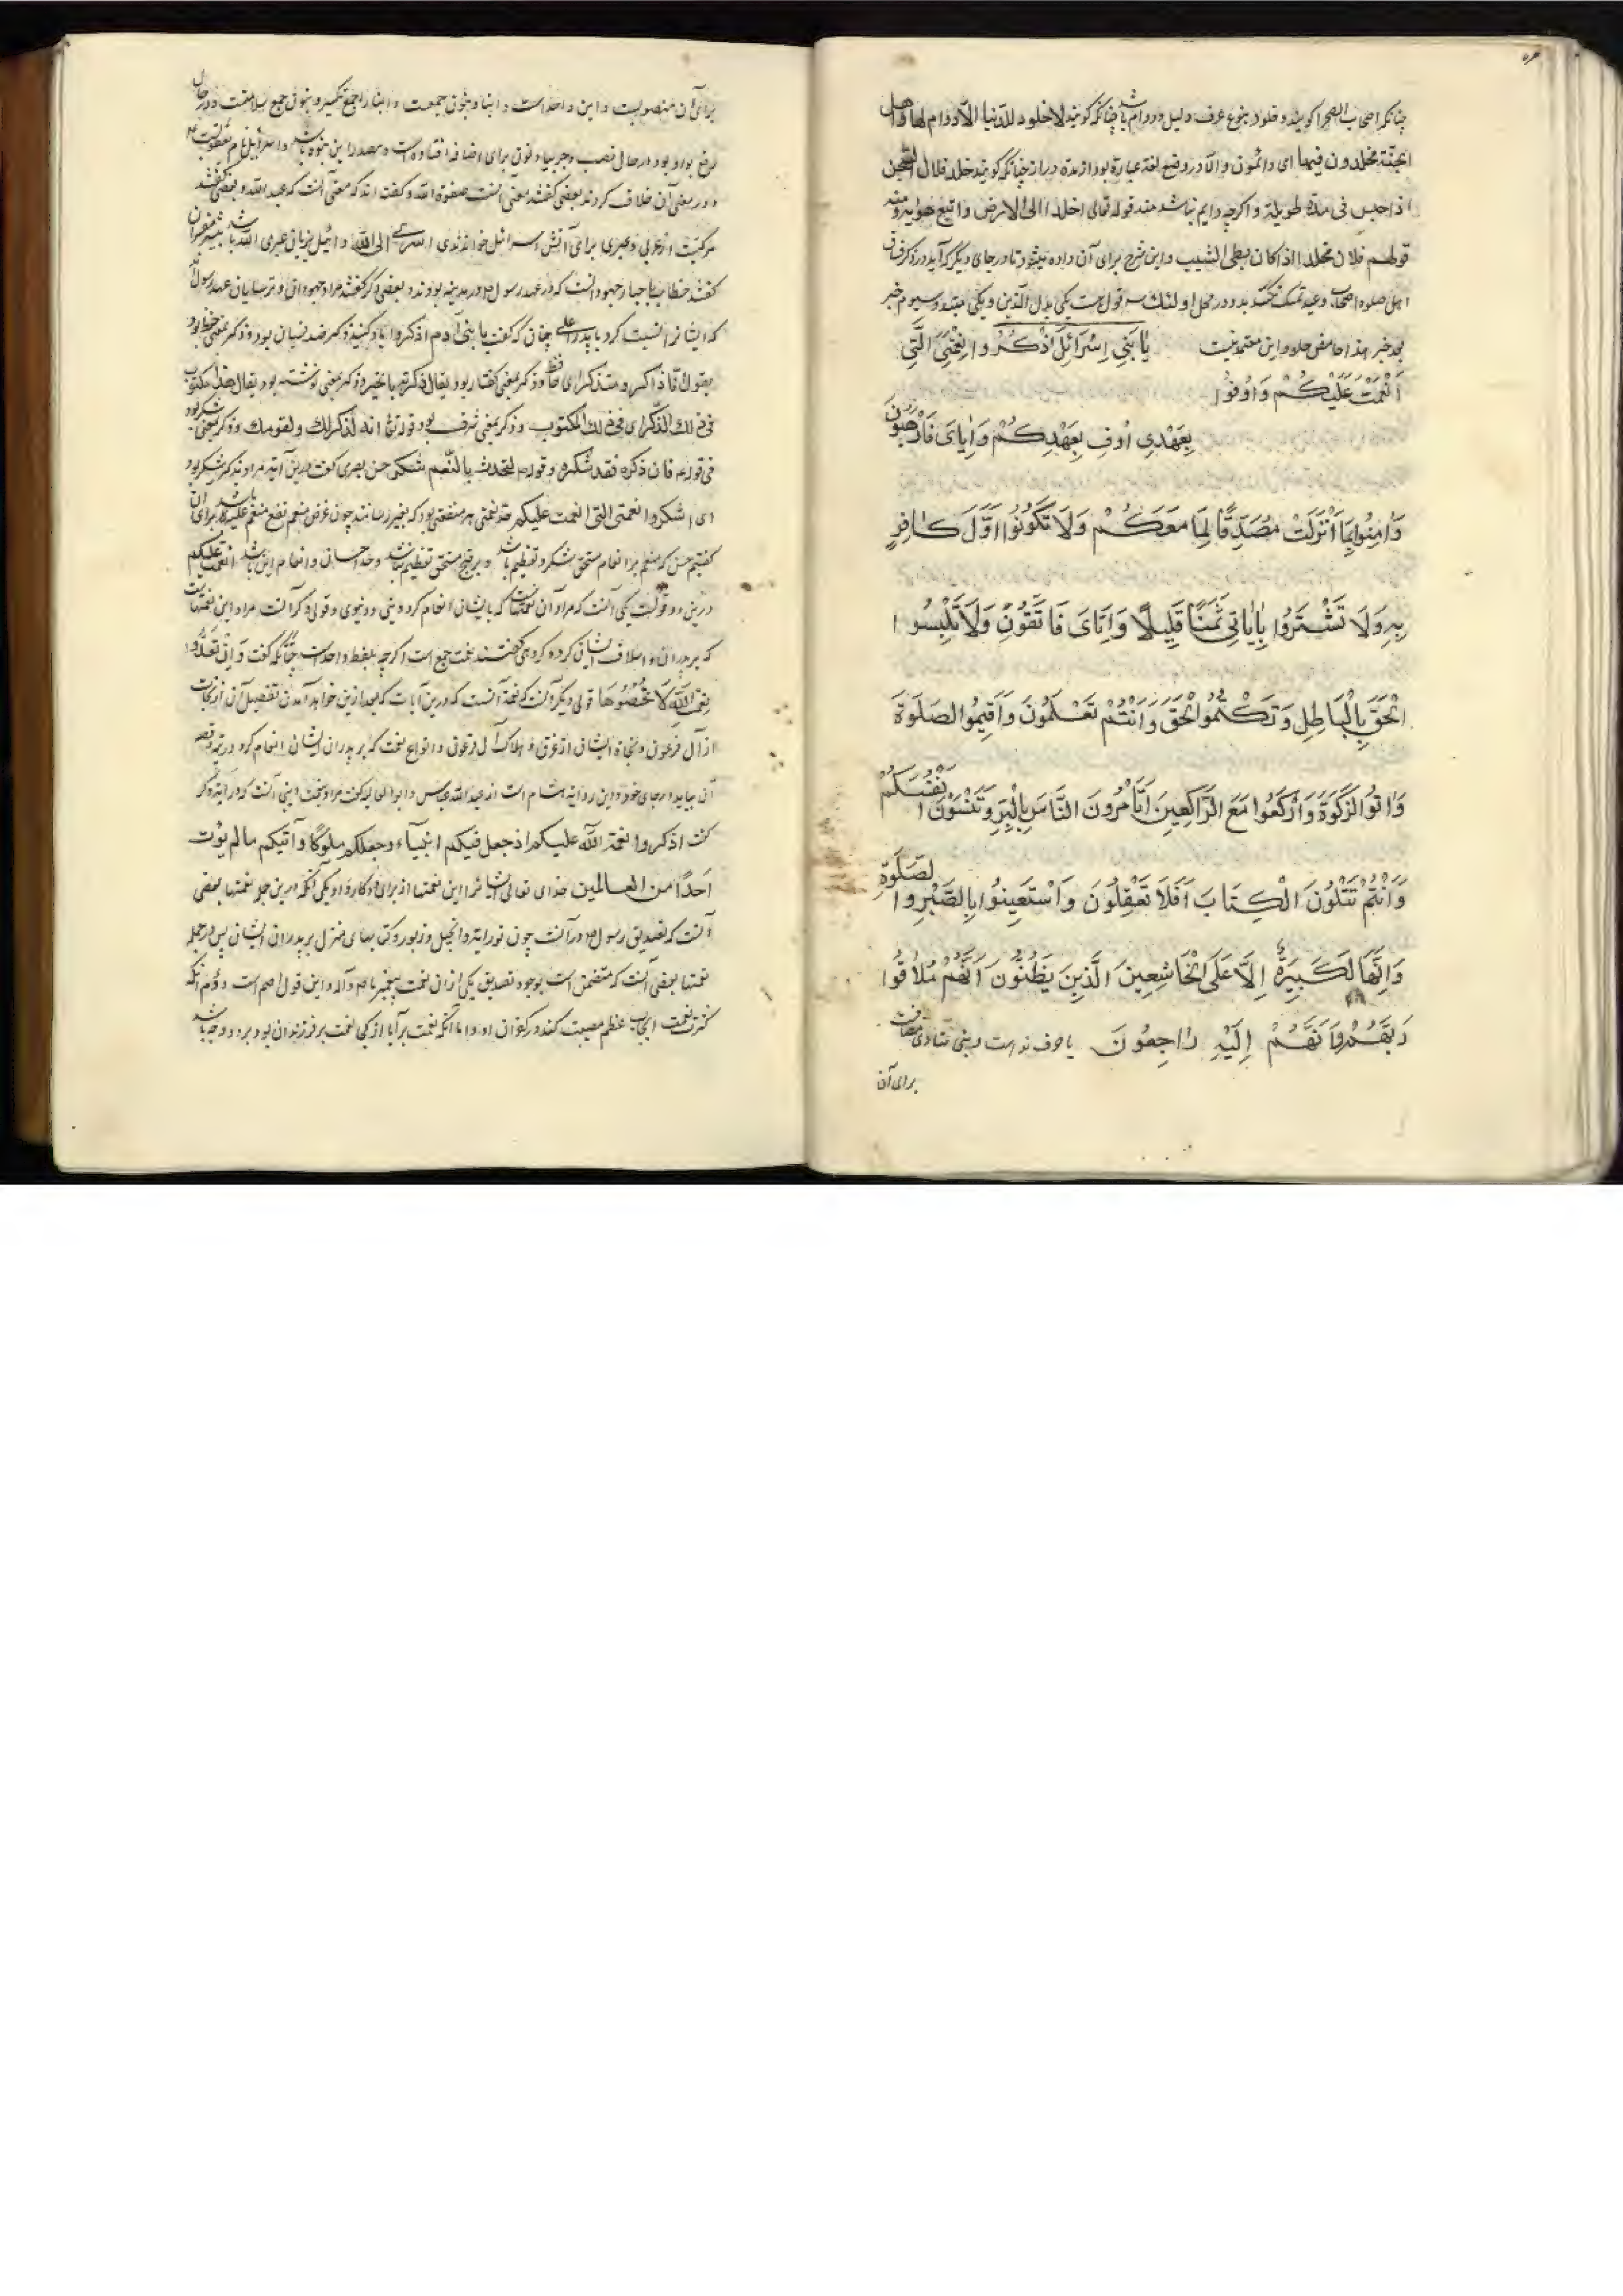 چنانکه اصحاب الصحرا گویند و خلود بنوع عرف دلیل دوام باشد چنانکه گویند لا خلود للدنیا ای لا دوام لها و اهل
الجنة مخلدون فیها ای دائمون و الا در وضع لغة عبارة بود از مدة دراز چنانکه گویند خلد فلان فی السجن
اذا حبس فی مدة طویلة و اگرچه دایم نباشد منه قوله تعالی اخلد الی الارض و اتبع هواه و منه
قولهم فلان مخلد اذا کان بطی الشیب و این شرح برای آن داده میشود تا در جای دیگر که آید در ذکر فساق
اهل صلوة اصحاب وعید تمسک نکنند بدو در محل اولئک سه قول است یکی بدل الذین و یکی مبتدا و سیوم خبر
بعد خبر هذا حامض حلو و این معتمد نیست یَا بَنِی اِسْرَائِلَ اذْکُرُوا نِعْمَتِیَ الَّتِی
اَنْعَمْتُ عَلَیْکُمْ وَ اَوْفُوا
بِعَهْدِی اُوفِ بِعَهْدِکُمْ وَ اِیَّایَ فَارْهَبُونِ
وَ اٰمِنُوا بِمَا اَنْزَلْتُ مُصَدِّقًا لِمَا مَعَکُمْ وَ لَا تَکُونُوا اَوَّلَ کَافِرٍ
بِهِ وَ لَا تَشْتَرُوا بِاٰیَاتِی ثَمَنًا قَلِیلًا وَ اِیَّایَ فَاتَّقُونِ وَ لَا تَلْبِسُوا
الْحَقَّ بِالْبَاطِلِ وَ تَکْتُمُوا الْحَقَّ وَ اَنْتُمْ تَعْلَمُونَ وَ اَقِیمُوا الصَلَوةَ
وَ اٰتُوا الزَّکَوةَ وَ ارْکَعُوا مَعَ الرَّاکِعِینَ اَتَأْمُرُونَ النَّاسَ بِالْبِرِّ وَ تَنْسَوْنَ اَنْفُسَکُمْ
وَ اَنْتُمْ تَتْلُونَ الْکِتَابَ اَفَلَا تَعْقِلُونَ وَ اسْتَعِینُوا بِالصَّبْرِ وَ الصَّلَوةِ
وَ اِنَّهَا لَکَبِیرَةٌ اِلَّا عَلَی الْخَاشِعِینَ الَّذِینَ یَظُنُّونَ اَنَّهُمْ مُلَاقُوا
رَبِّهِمْ وَ اَنَّهُمْ اِلَیْهِ رَاجِعُونَ یا حرف نداست و بنی منادی مضافست
برای آن
برای آن منصوبست و ابن واحد است و ابنا و بنون جمعست و ابنا را جمع تکسیر و بنون جمع سلامتست در حال
رفع بواو بود در حال نصب و جر بیا و نون برای اضافه افتاده است و مصدر ابن بنوه باشد و اسرائیل نام یعقوبست
و در معنی آن خلاف کردند بعضی گفتند معنی آنست صفوة الله و گفته اند که معنی آنست که عبد الله و بعضی گفتند
مرکبت از عربی و عبری برای آنش اسرائیل خواندندی اسری الی الله و ائیل بزبان عبری الله باشد بیشتر مفسران
گفتند خطاب با احبار جهودانست که در عهد رسول م در مدینه بودند و بعضی دگر گفتند مراد جهودان و ترسایان عهد رسول اند
که ایشانرا نسبت کرد با پدر اعلی چنان که گفت یا بنی آدم اذکروا یاد کنید ذکر ضد نسیان بود و ذکر بمعنی حفظ بود
یقول فاذاکر و متذکر ای حافظ و ذکر بمعنی گفتار بود یقال ذکرته بالخیر و ذکر بمعنی نوشته بود یقال هذا مکتوب
فی ذلک الذکر ای فی ذلک المکتوب و ذکر بمعنی شرف بود قوله تعالی انه لذکر لک و لقومک و ذکر بمعنی شکر بود
فی قوله فان ذکره فقد شکره و قوله التحدث بالنعم شکر حسن بصری گفت درین آیة مراد بذکر شکر بود
ای اشکروا نعمتی التی انعمت علیکم حد نعمتی هر منفعتی بود که بغیر رسانند چون غرض منعم نفع منعم علیه باشد برای آن
گفتیم حسن که منعم بر انعام مستحق شکر و تعظیم باشد و بر قبیح مستحق تعظیم نباشد و حد احسان و انعام این باشد انعمت علیکم
درین دو قولست یکی آنست که مراد آن نعمتهاست که با ایشان انعام کرد دینی و دنیوی و قولی دگر آنست مراد این نعمتهاست
که بر پدران و اسلاف ایشان کرده کردهی گفتند نعمت جمع است اگرچه بلفظ واحد است چنانکه گفت وَ اِنْ تَعُدُّوا
نِعْمَةَ اللهِ لَا تُحْصُوهَا قولی دیگر آنست که نعمة آنست که درین آیات که بعد ازین خواهد آمدن تفصیل آن از نجات
از آل فرعون و نجاة ایشان از غرق و هلاک آل فرعون و انواع نعمت که بر پدران ایشان انعام کرد در تیه و قصه
آن بیاید در جای خود و این روایة هشام است از عبد الله عباس و ابو العالیه گفت مراد بنعمت دینی آنست که در آیة دگر
گفت اذکروا نعمة الله علیکم اذ جعل فیکم انبیآء و جعلکم ملوکًا و آتیکم ما لم یؤت
اَحَدًا من العالمین خدای تعالی ایشانرا این نعمتها از برای دو کار داد یکی آنکه درین جمله نعمتها بعضی
آنست که تصدیق رسول م در آنست چون توراية و انجیل و زبور و کتابهای منزل بر پدران ایشان پس در جمله
نعمتها بعضی آنست که متضمن است بوجود تصدیق یکی از آن نعمت پیغمبر ما صم و آله و این قول اصم است دوم آنکه
کثرت نعمت ایجاب عظم معصیت کند در کفران او و اما آنکه نعمت بر آبا از کی نعمت بر فرزندان بود بر دو وجه باشد